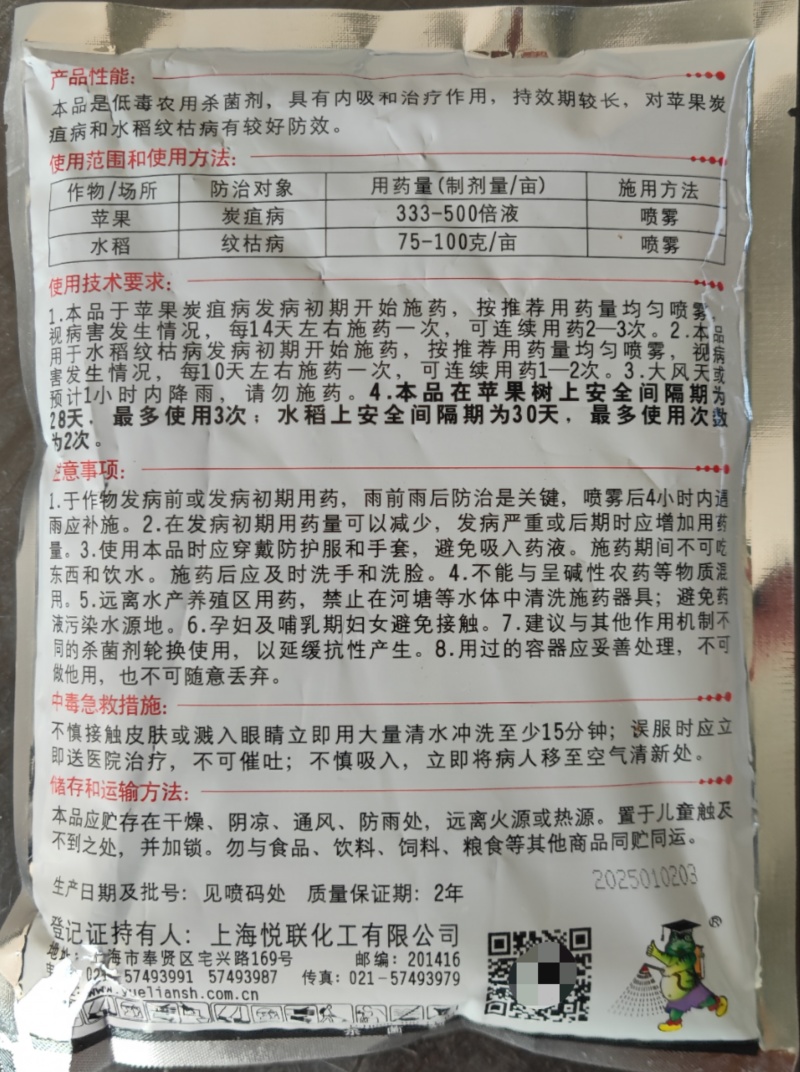 产品性能:
本品是低毒农用杀菌剂，具有内吸和治疗作用，持效期较长，对苹果炭
疽病和水稻纹枯病有较好防效。
使用范围和使用方法:
作物/场所 防治对象 用药量(制剂量/亩) 施用方法
苹果 炭疽病 333-500倍液 喷雾
水稻 纹枯病 75-100克/亩 喷雾
使用技术要求:
1.本品于苹果炭疽病发病初期开始施药，按推荐用药量均匀喷雾，
视病害发生情况，每14天左右施药一次，可连续用药2—3次。2.本品
用于水稻纹枯病发病初期开始施药，按推荐用药量均匀喷雾，视病
害发生情况，每10天左右施药一次，可连续用药1—2次。3.大风天或
预计1小时内降雨，请勿施药。4.本品在苹果树上安全间隔期为
28天，最多使用3次；水稻上安全间隔期为30天，最多使用次数
为2次。
注意事项:
1.于作物发病前或发病初期用药，雨前雨后防治是关键，喷雾后4小时内遇
雨应补施。2.在发病初期用药量可以减少，发病严重或后期时应增加用药
量。3.使用本品时应穿戴防护服和手套，避免吸入药液。施药期间不可吃
东西和饮水。施药后应及时洗手和洗脸。4.不能与呈碱性农药等物质混
用。5.远离水产养殖区用药，禁止在河塘等水体中清洗施药器具；避免药
液污染水源地。6.孕妇及哺乳期妇女避免接触。7.建议与其他作用机制不
同的杀菌剂轮换使用，以延缓抗性产生。8.用过的容器应妥善处理，不可
做他用，也不可随意丢弃。
中毒急救措施:
不慎接触皮肤或溅入眼睛立即用大量清水冲洗至少15分钟；误服时应立
即送医院治疗，不可催吐；不慎吸入，立即将病人移至空气清新处。
储存和运输方法:
本品应贮存在干燥、阴凉、通风、防雨处，远离火源或热源。置于儿童触及
不到之处，并加锁。勿与食品、饮料、饲料、粮食等其他商品同贮同运。
生产日期及批号: 见喷码处 质量保证期: 2年
2025010203
登记证持有人: 上海悦联化工有限公司
地址: 上海市奉贤区宅兴路169号 邮编: 201416
电 021-57493991 57493987 传真: 021-57493979
www.yueliansh.com.cn
®